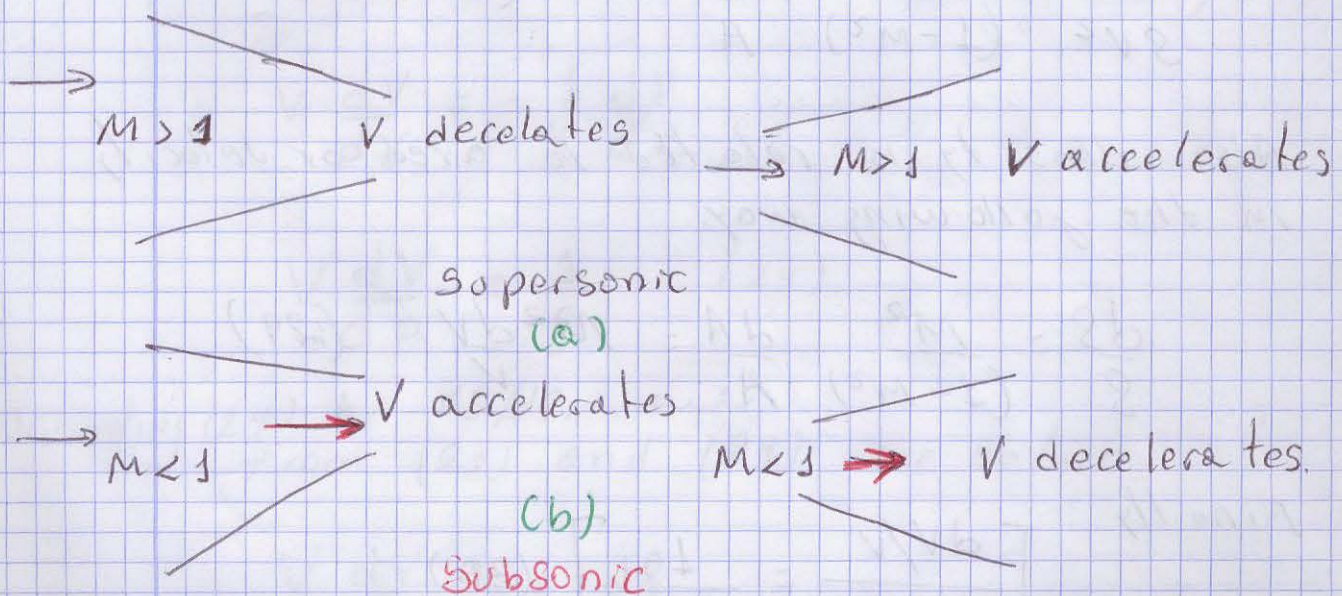 M > 1 V decelates
M > 1 V accelerates
Sopersonic
(a)
V accelerates
M < 1
M < 1 V decelerates.
(b)
Subsonic